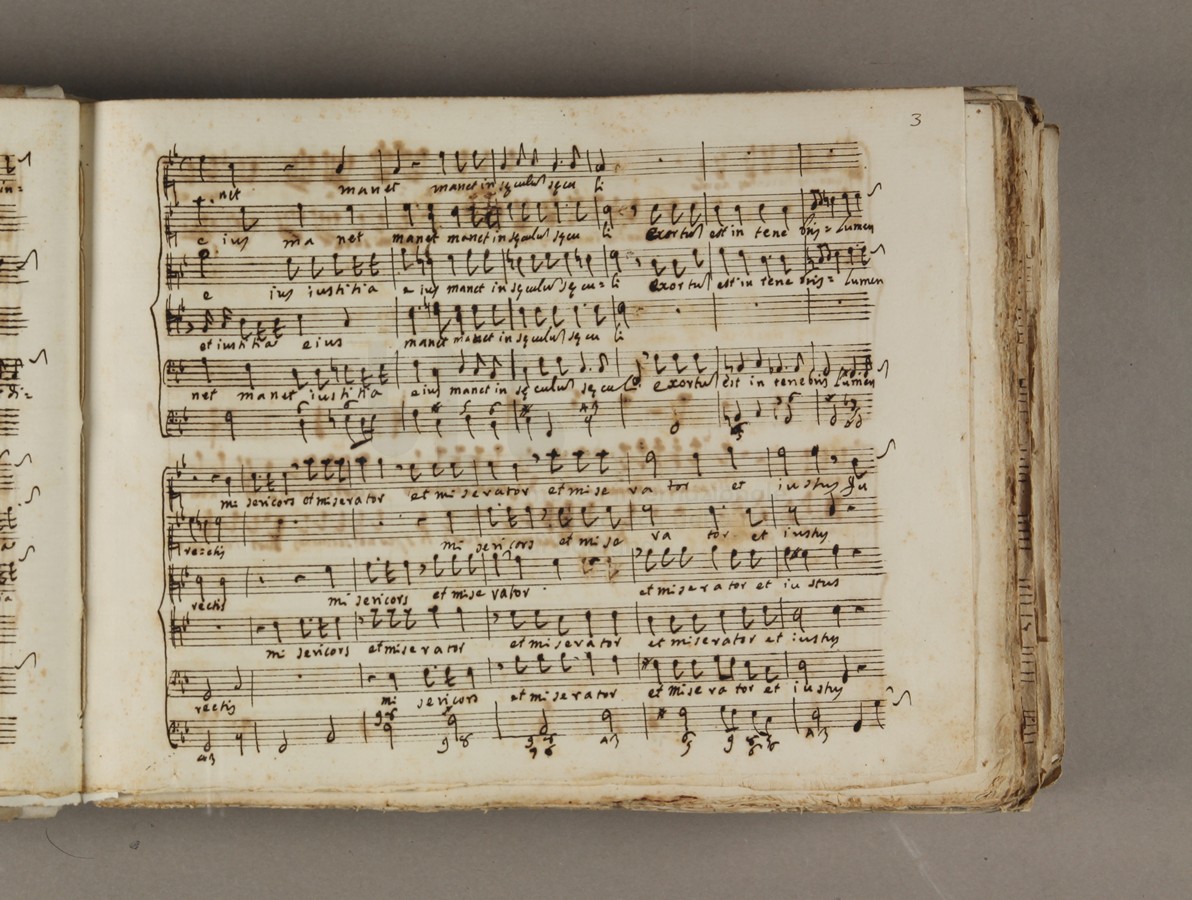 3
net manet manet in sęculũ sęcu li
e ius ma net manet manet in sęculũ sęcu li exortũ est in tene bris= Lumen
e ius iustitia e ius manet in sęculũ sę cu= li exortũ est in tene bris= lumen
et iustitia eius manet manet in sęculũ sęcu li
net manet iustitia eius manet in sę culũ sę cu li exortũ est in tenebris Lumen
mi sericors et miserator et mi serator et mise ra tor et iustus
rectis mi sericors et mise ra tor et iustus
rectis mi sericors et mise rator et mise ra tor et iu stus
mi sericors et mise rator et mi serator et mi serator et iustus
rectis mi sericors et mi se rator et mise ra tor et iustus